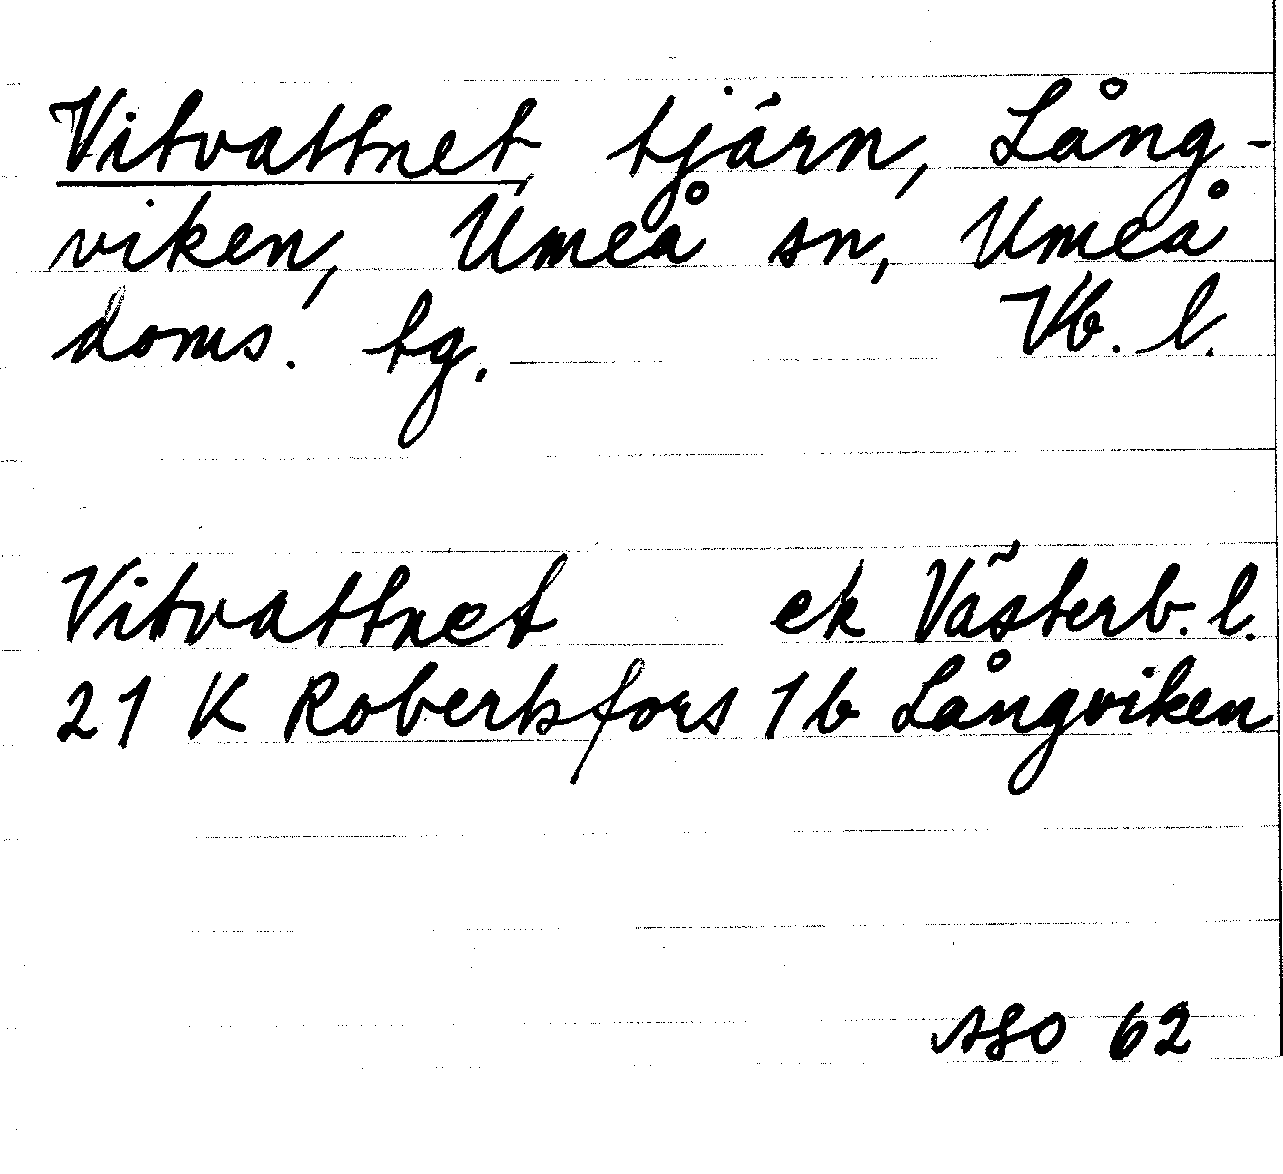 Vitvattnet, tjärn, Lång-
viken, Umeå sn, Umeå
doms. tg. Vb. l.
Vitvattnet ek Västerb. l.
21 K Robertsfors 1b Långviken
62